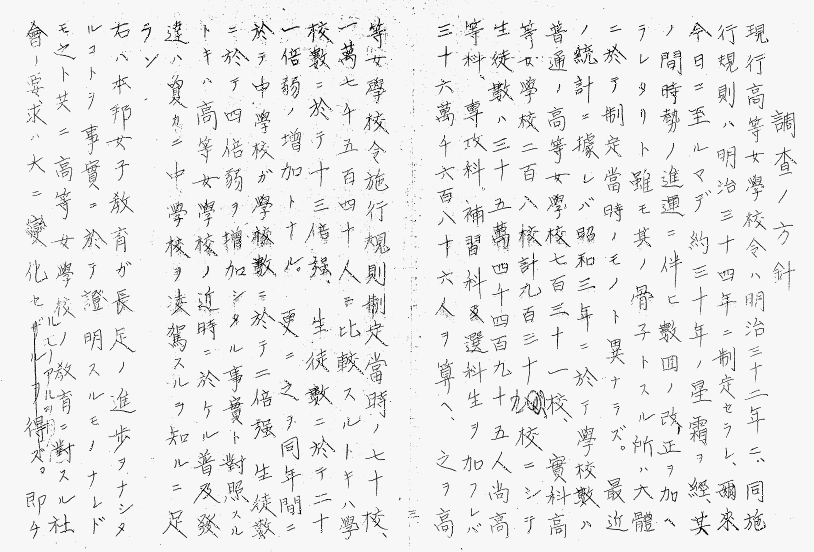 調査ノ方針
現行高等女學校令ハ明治三十二年ニ、同施
行規則ハ明治三十四年ニ制定セラレ、爾來
今日ニ至ルマデ約三十年ノ星霜ヲ經、其
ノ間時勢ノ進運ニ伴ヒ數囘ノ改正ヲ加ヘ
ラレタリト雖モ其ノ骨子トスル所ハ大體
ニ於テ制定當時ノモノト異ナラズ。最近
ノ統計ニ據レバ昭和三年ニ於テ學校數ハ
普通ノ高等女學校七百三十一校、實科高
等女學校二百八校計九百三十九校ニシテ
生徒數ハ三十五萬四千四百九十五人尚高
等科、專攻科、補習科及選科生ヲ加フレバ
三十六萬千六百八十六人ヲ算ヘ、之ヲ高
等女學校令施行規則制定當時ノ七十校、
一萬七千五百四十人ニ比較スルトキハ學
校數ニ於テ十三倍強、生徒數ニ於テ二十
一倍弱ノ増加トナル。更ニ之ヲ同年間ニ
於テ中學校ガ學校數ニ於テ二倍強生徒數
ニ於テ四倍弱ヲ増加シタル事實ト對照スル
トキハ高等女學校ノ近時ニ於ケル普及發
達ハ優カニ中學校ヲ凌駕スルヲ知ルニ足
ラン。
右ハ本邦女子教育ガ長足ノ進歩ヲナシタ
ルコトヲ事實ニ於テ證明スルモノナレド
モ之ト共ニ高等女學校ノ教育ニ對スル社
會ノ要求ハ大ニ變化セザルヲ得ズ。即チ